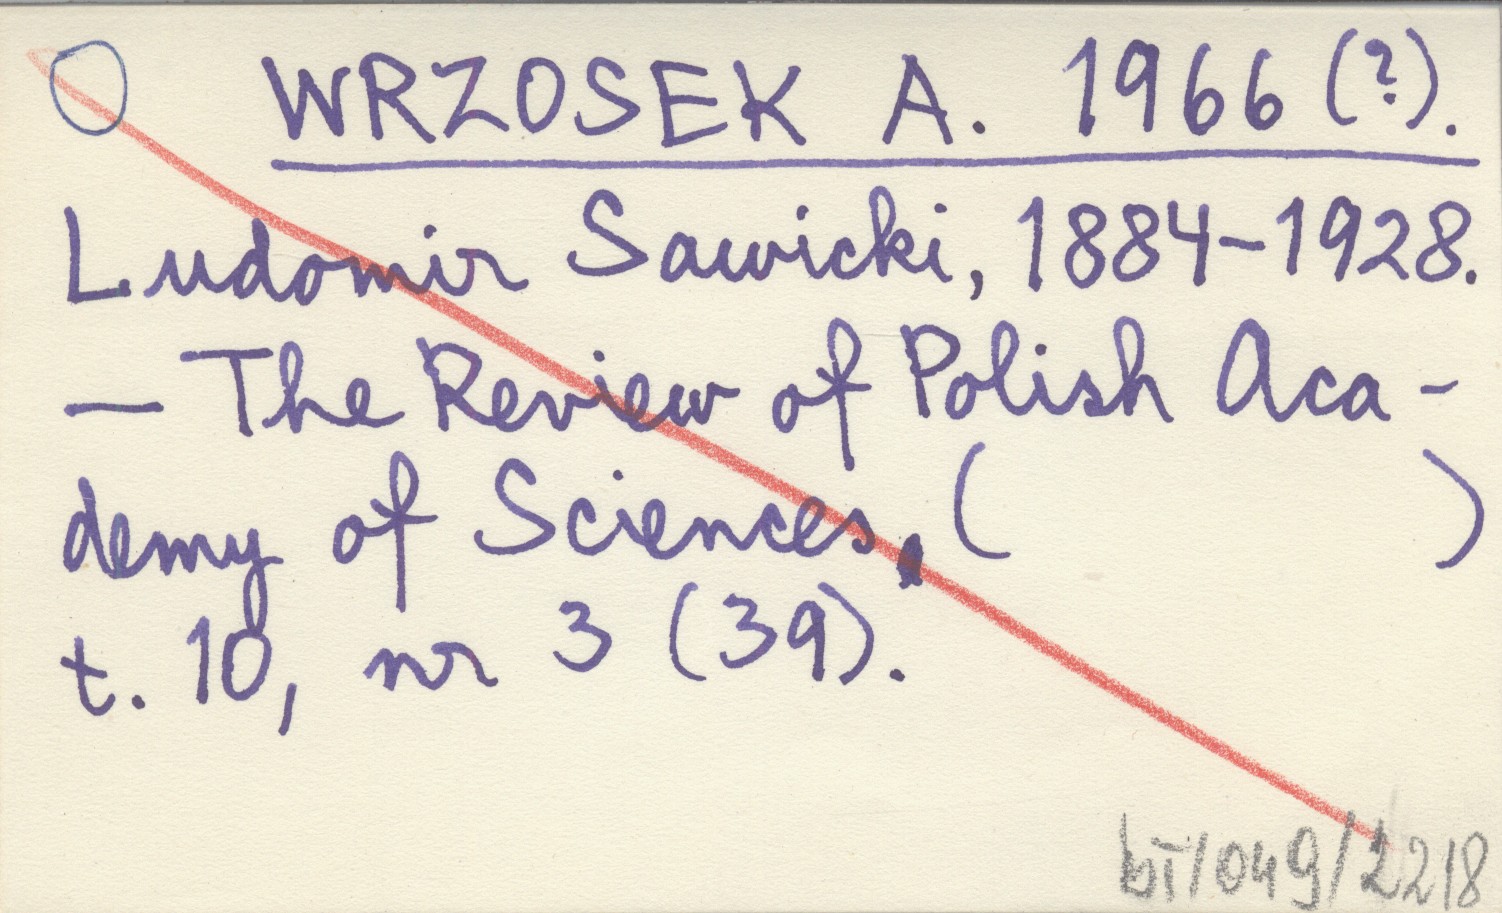 WRZOSEK A. 1966 (?).
Ludomir Sawicki, 1884-1928.
— The Review of Polish Aca-
demy of Sciences, ( )
t. 10, nr 3 (39).
bT/049/2218